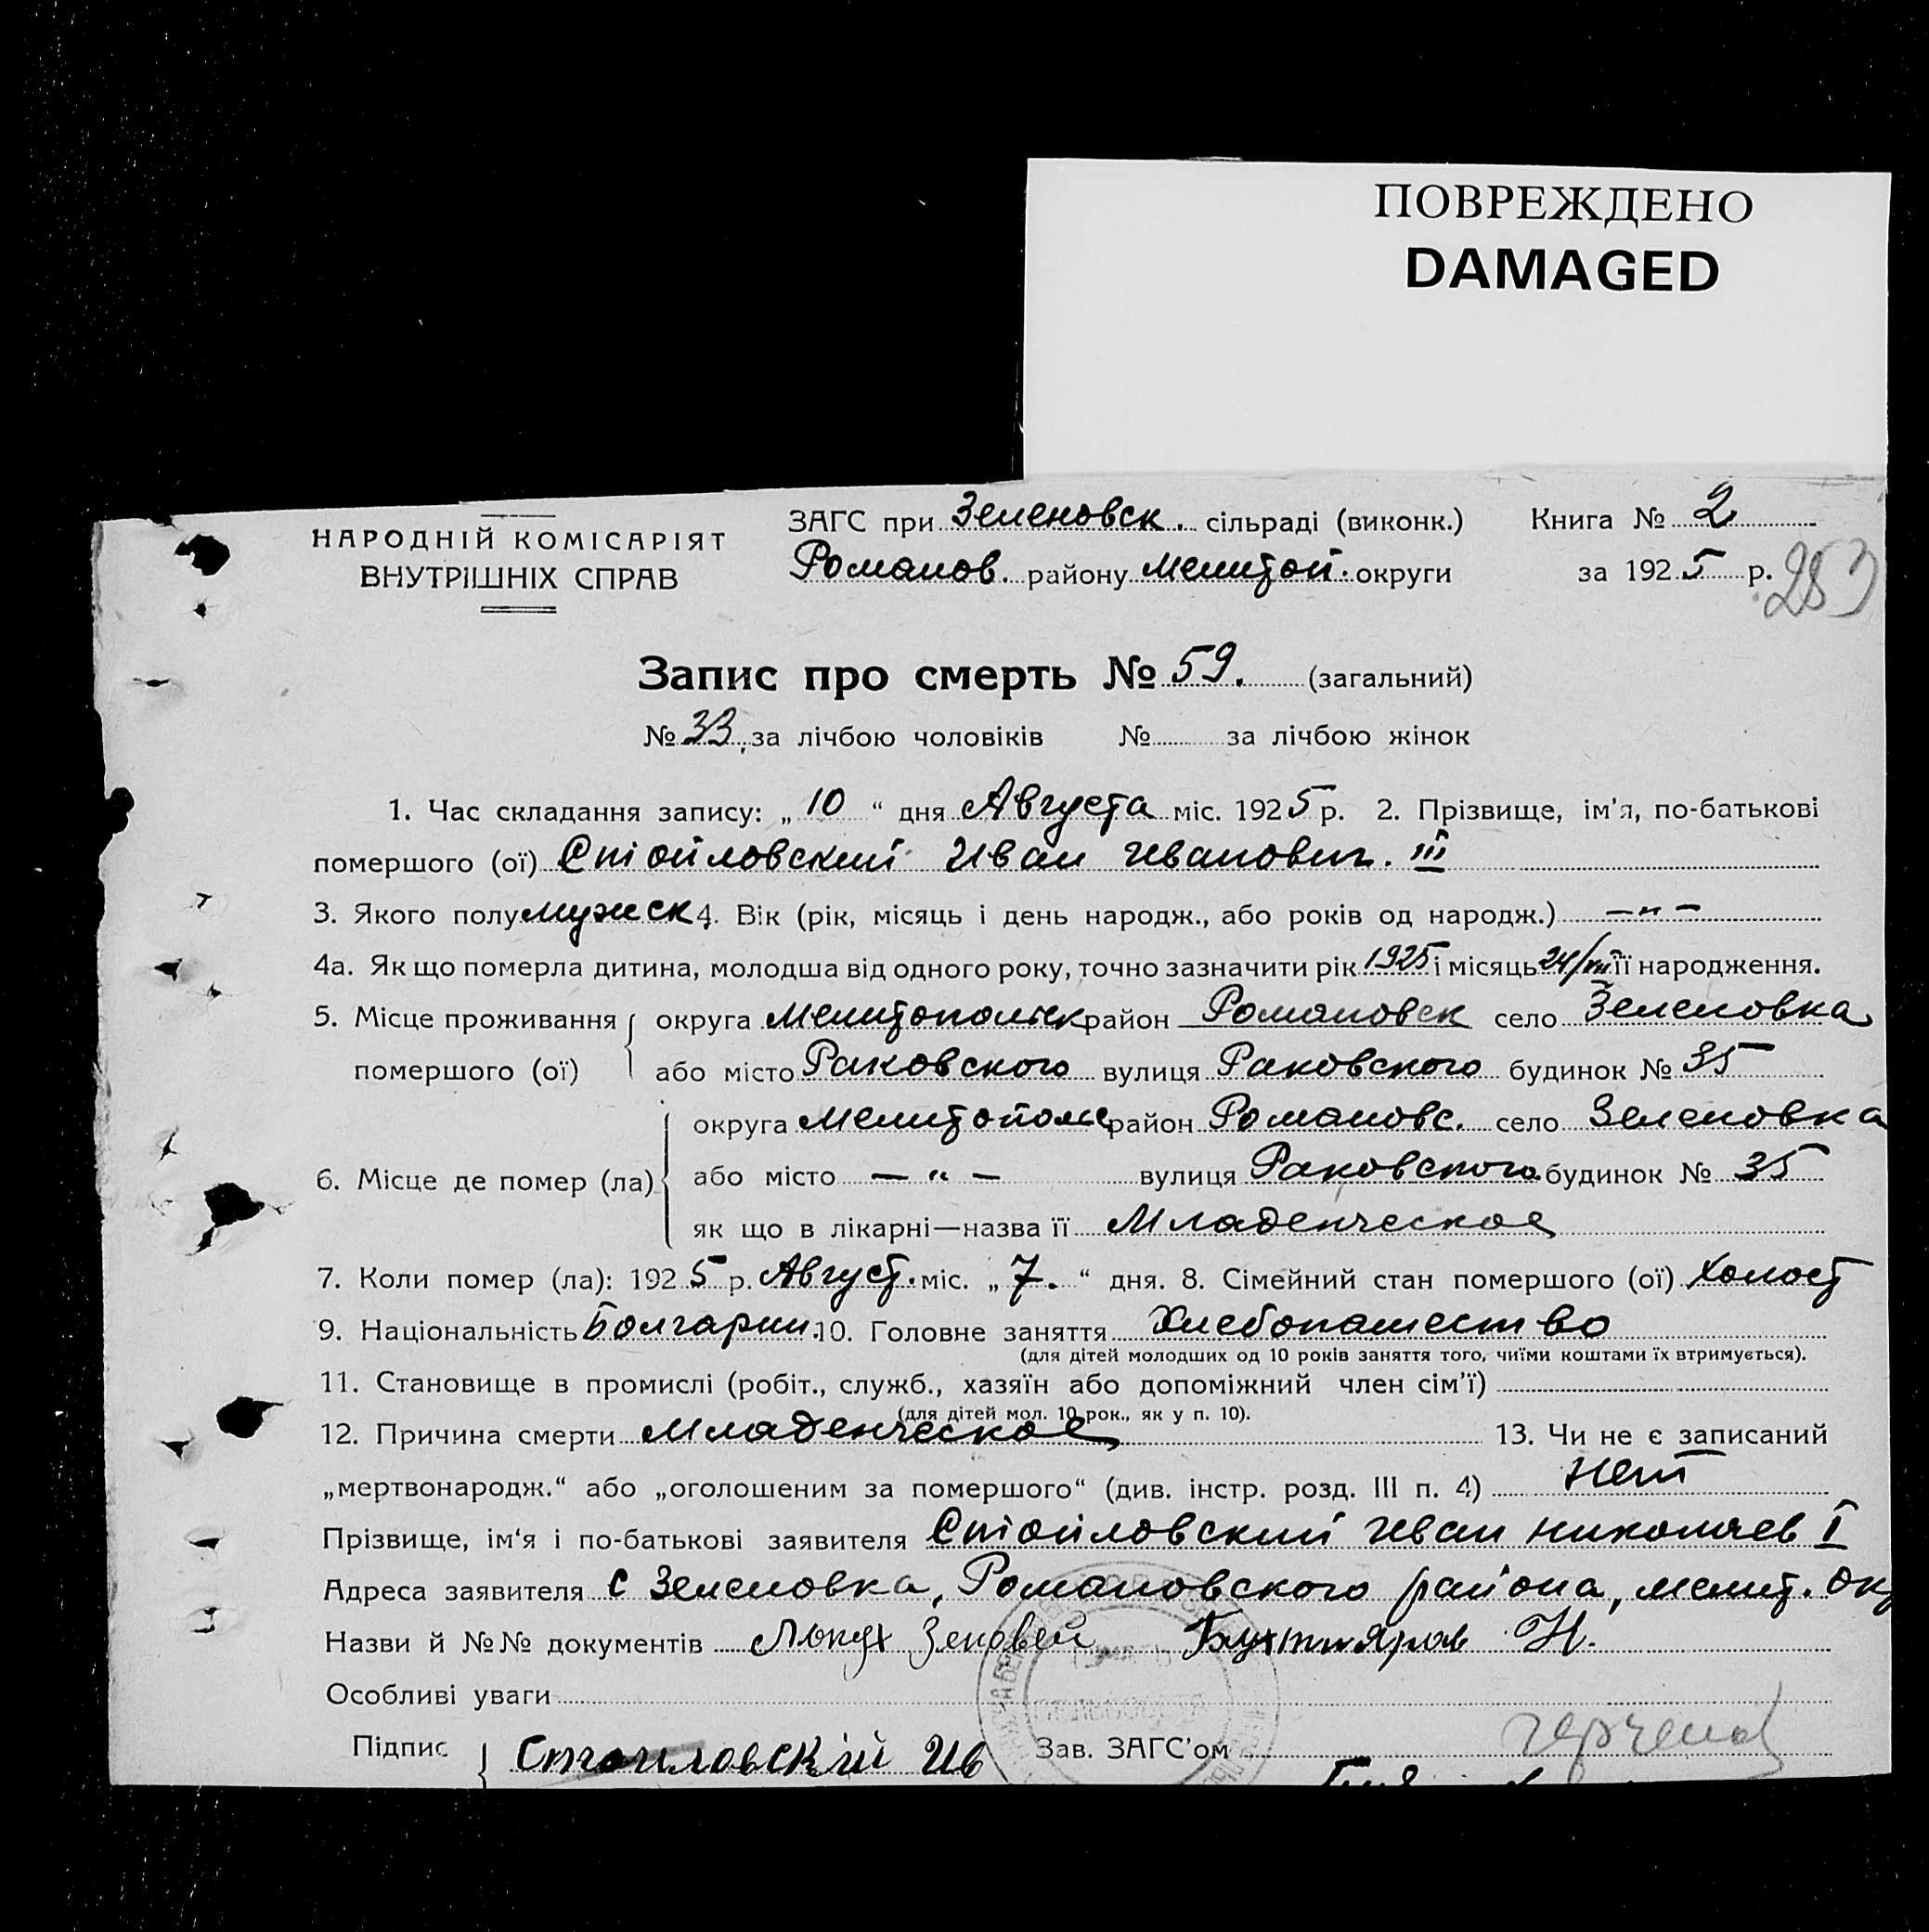 ПОВРЕЖДЕНО
DAMAGED
НАРОДНІЙ КОМІСАРІЯТ
ВНУТРІШНІХ СПРАВ
ЗАГС при Зеленовск. сільраді (виконк.)
Романов. району Мелитоп. округи
Книга № 2
за 1925 р.
253
Запис про смерть № 59. (загальний)
№ 33 за лічбою чоловіків № за лічбою жінок
1. Час складання запису: „10“ дня Августа міс. 1925 р. 2. Прізвище, ім'я, по-батькові
помершого (ої) Стойловский Иван Иванович. III
3. Якого полу мужеск 4. Вік (рік, місяць і день народж., або років од народж.) — „ —
4а. Як що померла дитина, молодша від одного року, точно зазначити рік 1925 і місяць 24/VII її народження.
5. Місце проживання помершого (ої)
округа Мелитопольск район Романовск село Зеленовка
або місто Раковского вулиця Раковского будинок № 35
6. Місце де помер (ла)
округа Мелитополь район Романовс. село Зеленовка
або місто — „ — вулиця Раковского будинок № 35
як що в лікарні—назва її Младенческое
7. Коли помер (ла): 1925 р. Август. міс. „7.“ дня. 8. Сімейний стан помершого (ої) Холост
9. Національність Болгарин. 10. Головне заняття Хлебопашество
(для дітей молодших од 10 років заняття того, чиїми коштами їх втримується).
11. Становище в промислі (робіт., служб., хазяїн або допоміжний член сім'ї)
(для дітей мол. 10 рок., як у п. 10).
12. Причина смерти Младенческое 13. Чи не є записаний
„мертвонародж.“ або „оголошеним за помершого“ (див. інстр. розд. III п. 4) Нет
Прізвище, ім'я і по-батькові заявителя Стойловский Иван Николаев I
Адреса заявителя с Зеленовка, Романовского района, Мелит. Окр
Назви й №№ документів
Особливі уваги
Підпис Стоиловский Ив Зав. ЗАГС'ом